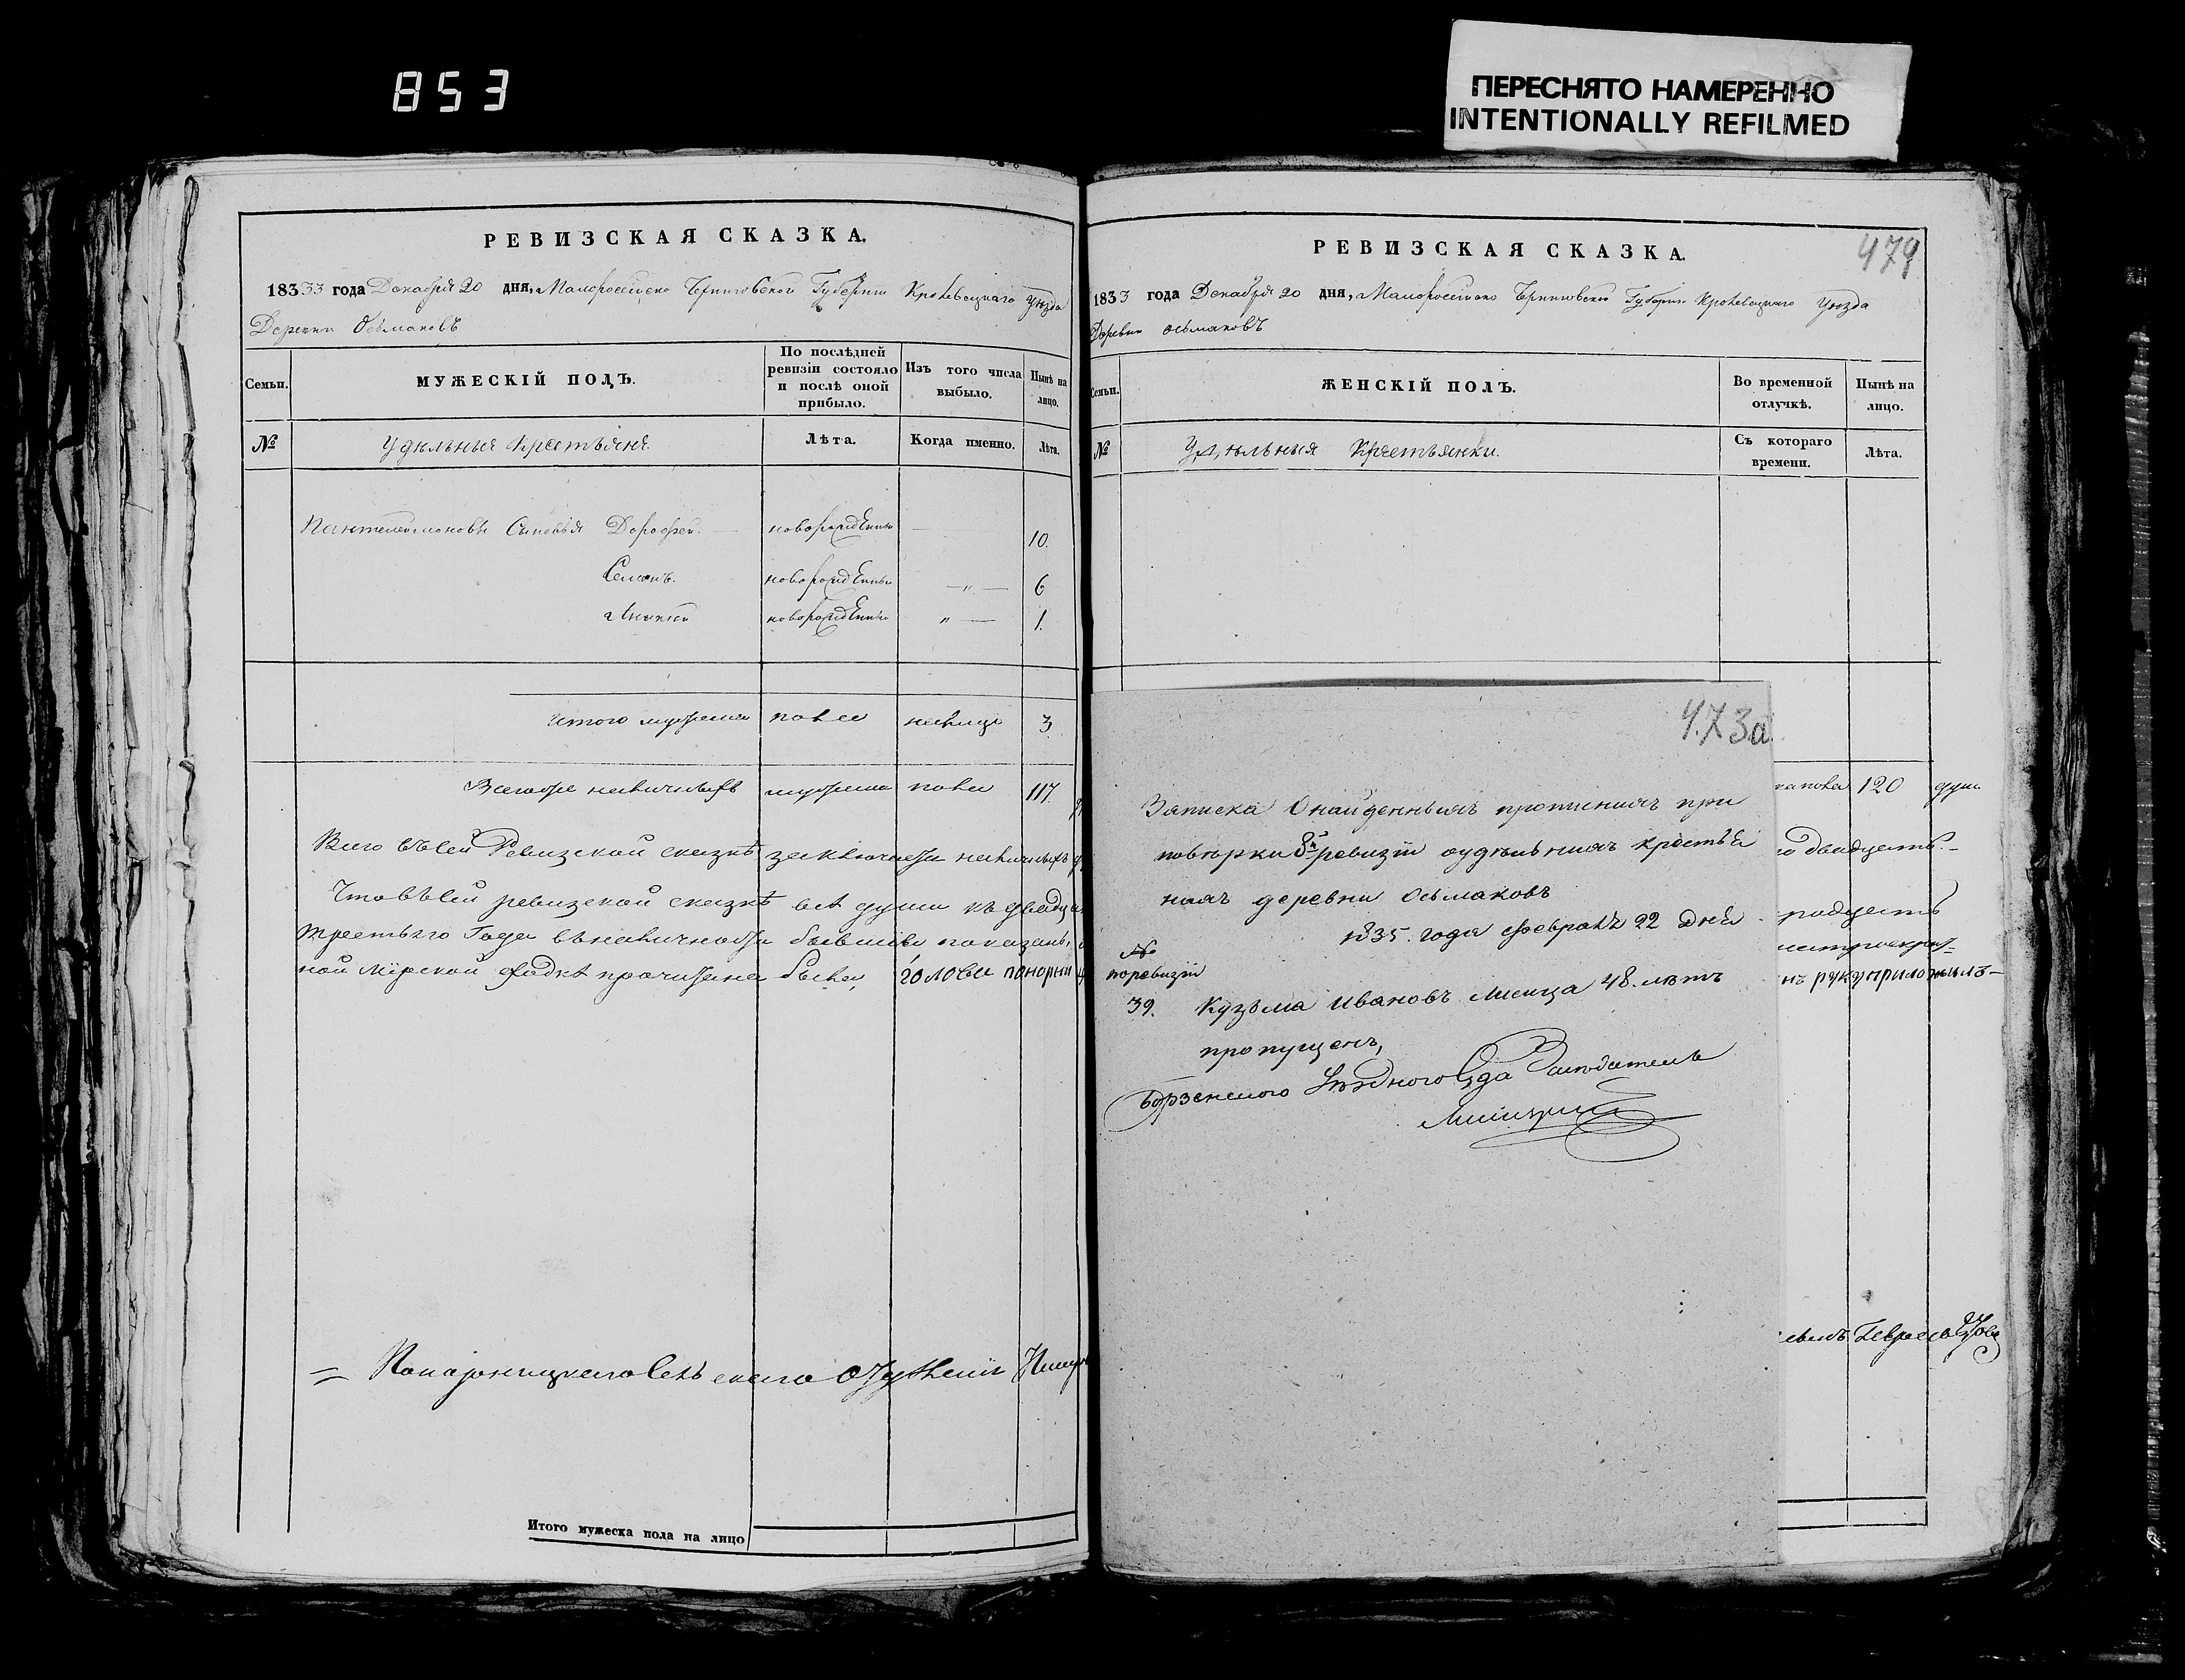 853
ПЕРЕСНЯТО НАМЕРЕННО
INTENTIONALLY REFILMED
РЕВИЗСКАЯ СКАЗКА.
18333 года Декабря 20 дня, Малороссійско Черниговской Губерніи Кролевецкаго Уѣзда
Деревни Осьмаковъ
Семьи.
МУЖЕСКІЙ ПОЛЪ.
По послѣдней ревизіи состояло и послѣ оной прибыло.
Изъ того числа выбыло.
Нынѣ на лицо.
№
Удѣльныя Крестьяня.
Лѣта.
Когда именно.
Лѣта.
Пантелеймоновы Сыновья Дорофей. новорожденный 10.
Семенъ. новорожденный 6
новорожденный 1.
Итого мужеска пола налицо 3
Всегоже наличныхъ мужеска пола 117
Всего въсей Ревизской сказкѣ заключается наличныхъ
Что въсей ревизской сказкѣ всѣ души къ двадца
третьяго Года
ной Мірской Сходкѣ прочитана была, головы
Сельскаго
Итого мужеска пола на лицо
РЕВИЗСКАЯ СКАЗКА.
479
1833 года Декабря 20 дня, Малороссійско Черниговской Губерніи Кролевецкаго Уѣзда
Деревни Осьмаковъ
Семьи.
ЖЕНСКІЙ ПОЛЪ.
Во временной отлучкѣ.
Нынѣ на лицо.
№
Удѣльныя Крестьянки.
Съ котораго времени.
Лѣта.
пола 120 душ
двадцать.
руку приложилъ
473а.
Записка Онайденныхъ прописныхъ при
повѣрки 8й ревизіи оудѣльныхъ крестья
ныхъ деревни Осьмаковъ
1835. года февраля 22 дня
№
поревизіи
39. Кузьма Ивановъ Лисица 48. лѣтъ
пропущенъ,
Борзенского Уѣздного Суда Засѣдатель